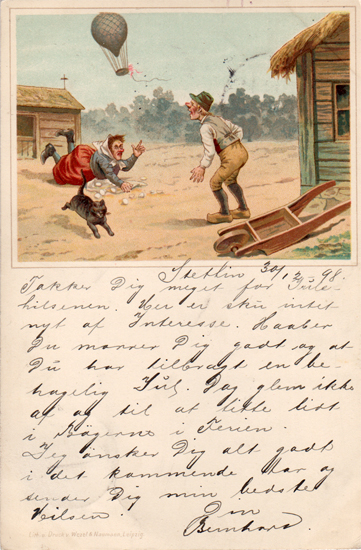 Stettin 30/12 98.
Takker Dig meget for Jule-
hilsenen. Her er sku intet
nyt af Interesse. Haaber
Du morrer Dig godt og at
Du har tilbragt en be-
hagelig Jul. Dag glem ikke
af og til at titte lidt
i Bøgerne i Ferien.
Jeg ønsker Dig alt godt
i det kommende Aar og
sender Dig min bedste
Hilsen. Din
Bernhard.
Lith. u. Druck v. Wezel & Naumann, Leipzig.